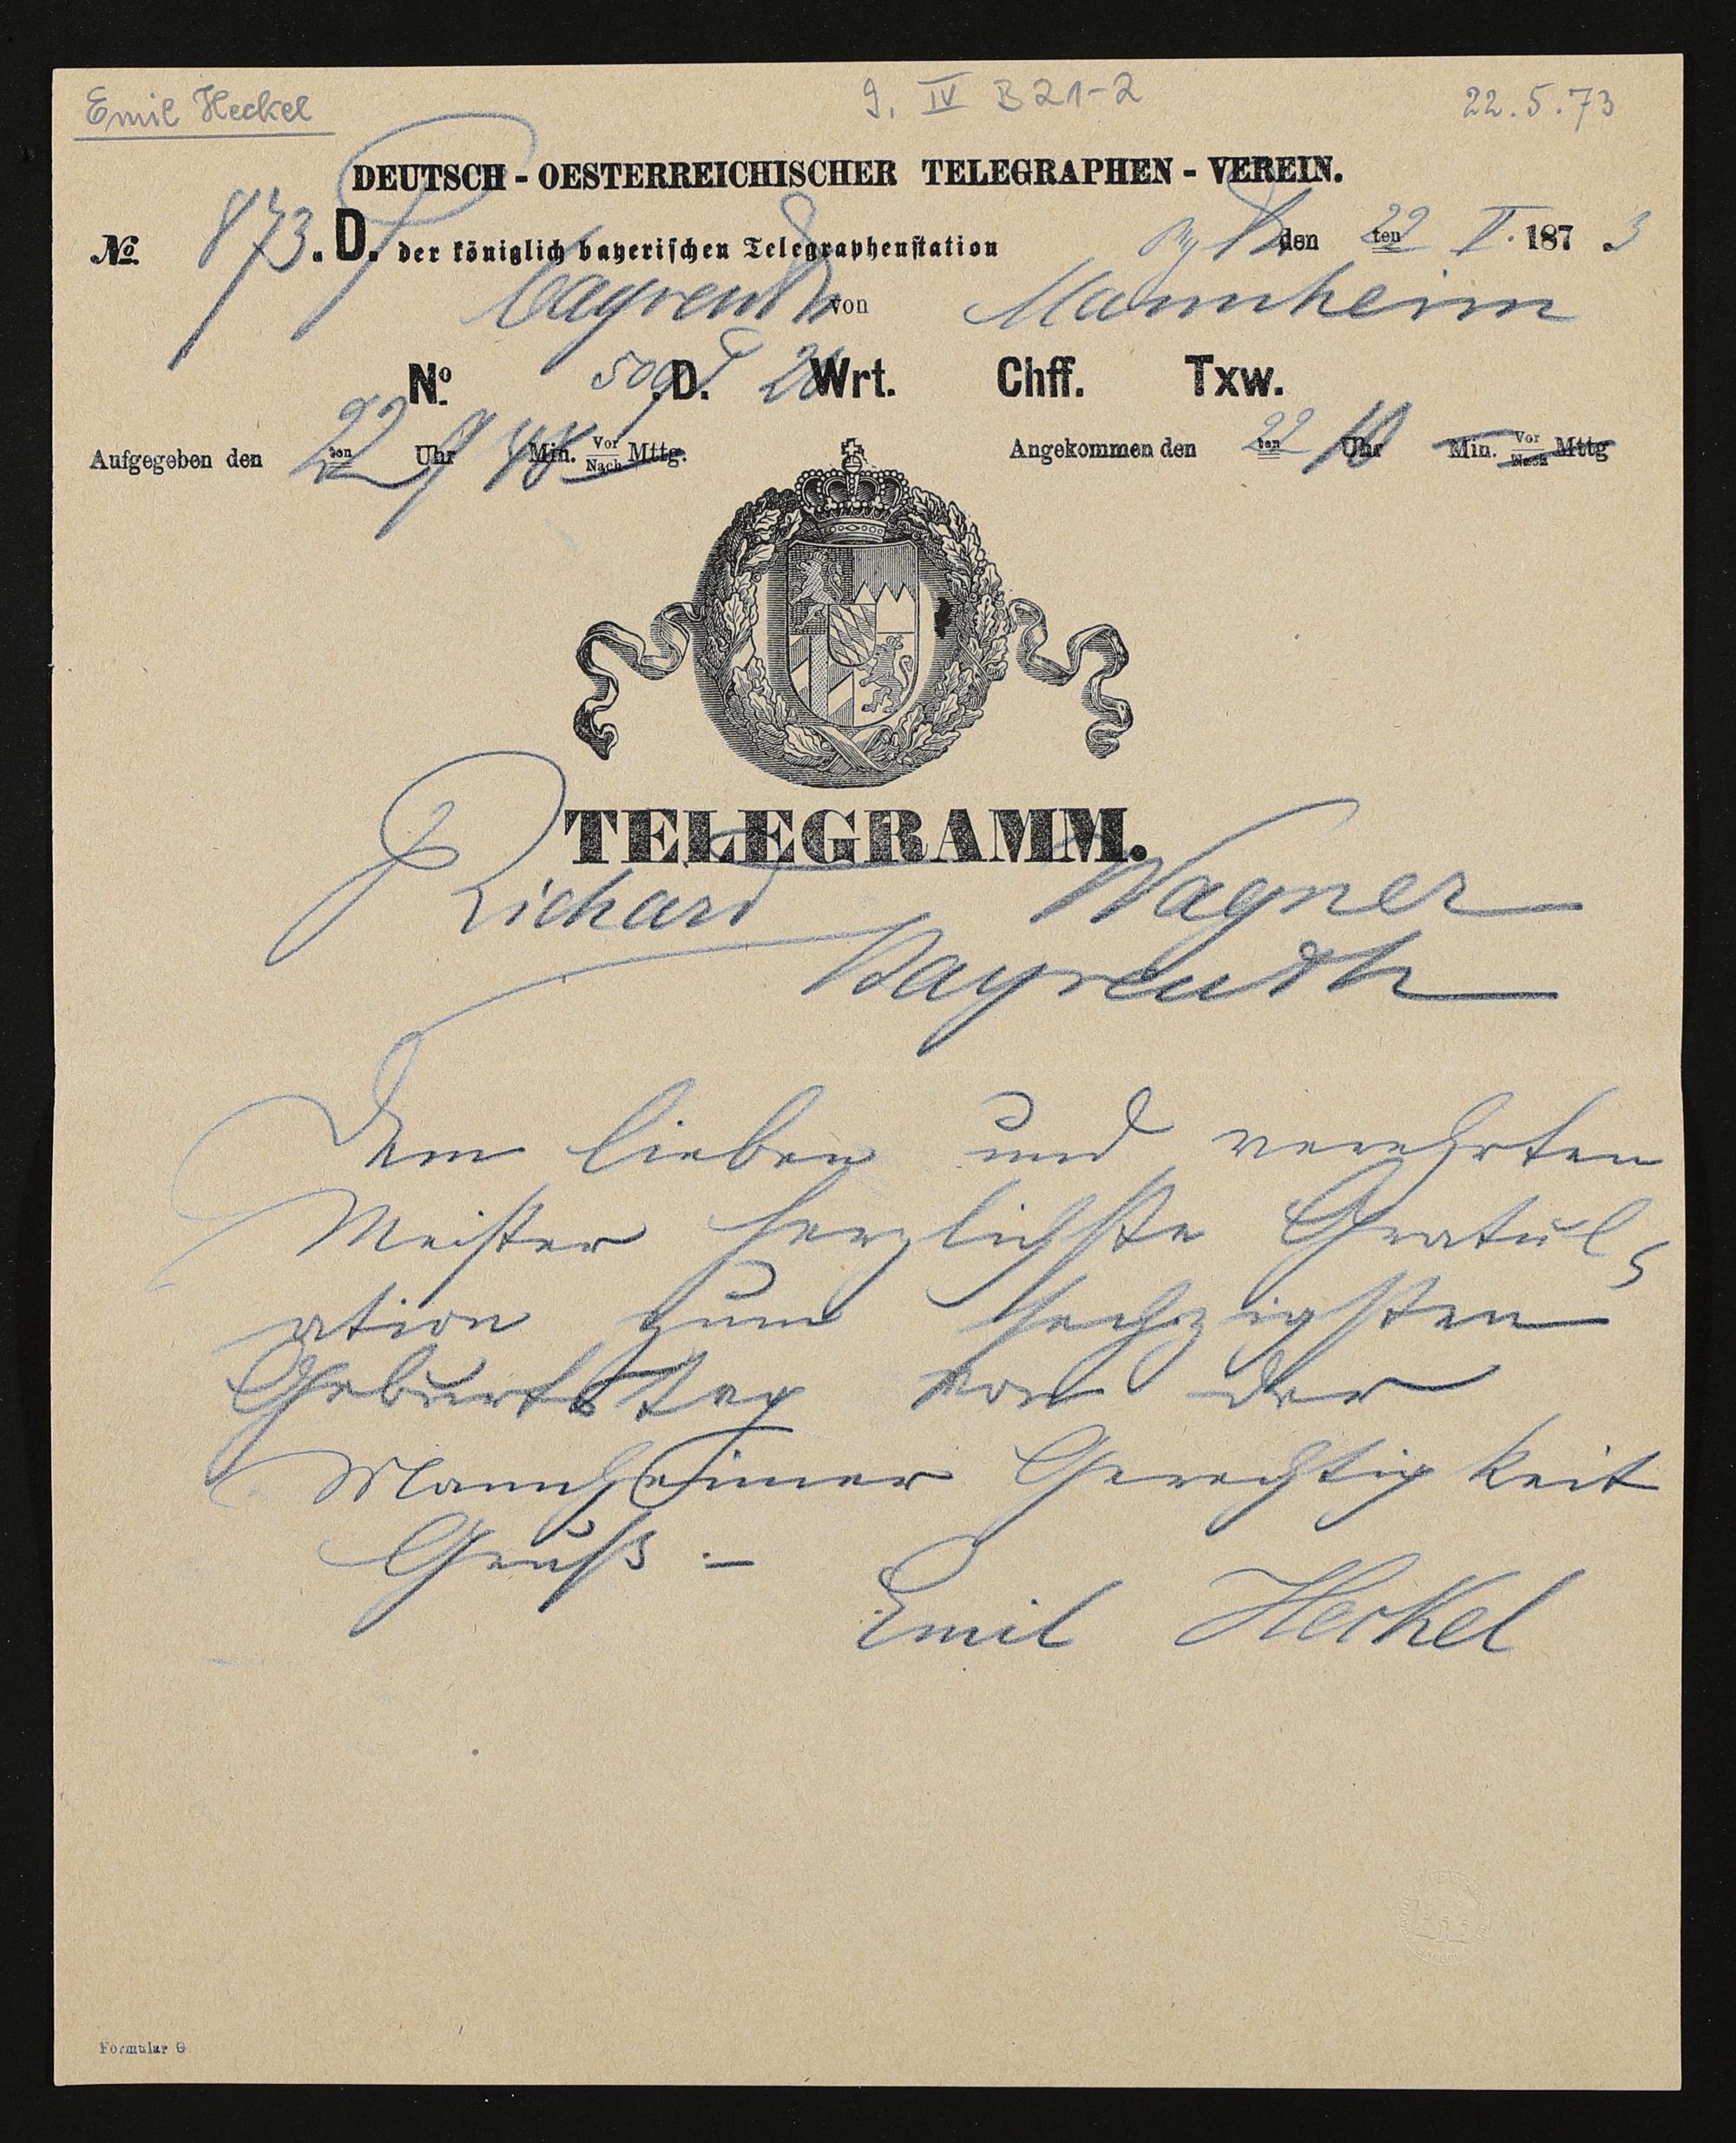 Emil Heckel
9. IV B 21-2
22.5.73
DEUTSCH - OESTERREICHISCHER TELEGRAPHEN - VEREIN.
No. 873. D. der königlich bayerischen Telegraphenstation den 22 ten V. 1873
Bayreuth von Mannheim
No. 509 D. 26 Wrt. Chff. Txw.
Aufgegeben den 22 ten 9 Uhr 48 Min. Vor Nach Mttg. Angekommen den 22 ten 10 Uhr Min. Vor Nach Mttg
TELEGRAMM.
Richard Wagner
Bayreuth
Dem lieben und verehrten
Meister herzlichste Gratul
ation zum sechzigsten
Geburtstag von der
Mannheimer Gerechtigkeit
Gruß -
Emil Heckel
Formular